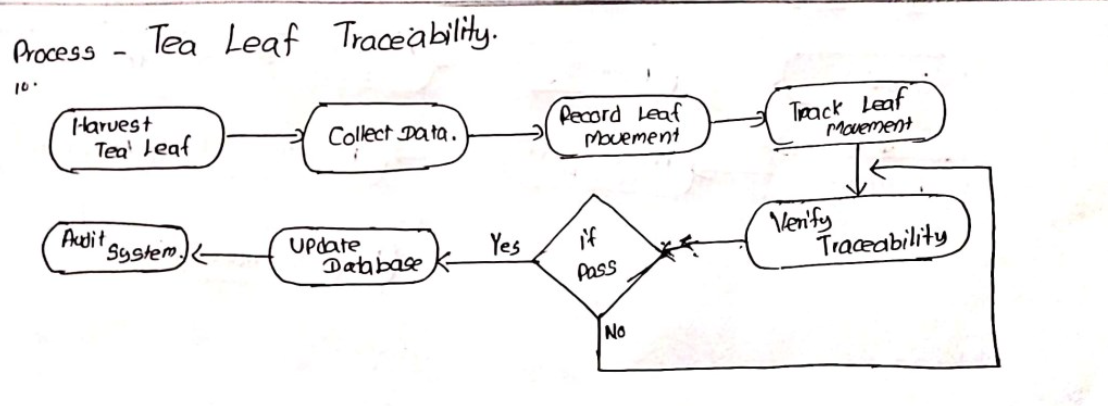 Process - Tea Leaf Traceability.
10.
Harvest
Tea Leaf
Collect Data.
Record Leaf
Movement
Track Leaf
Movement
Verify
Traceability
if
Pass
Yes
No
Update
Database
Audit
System.